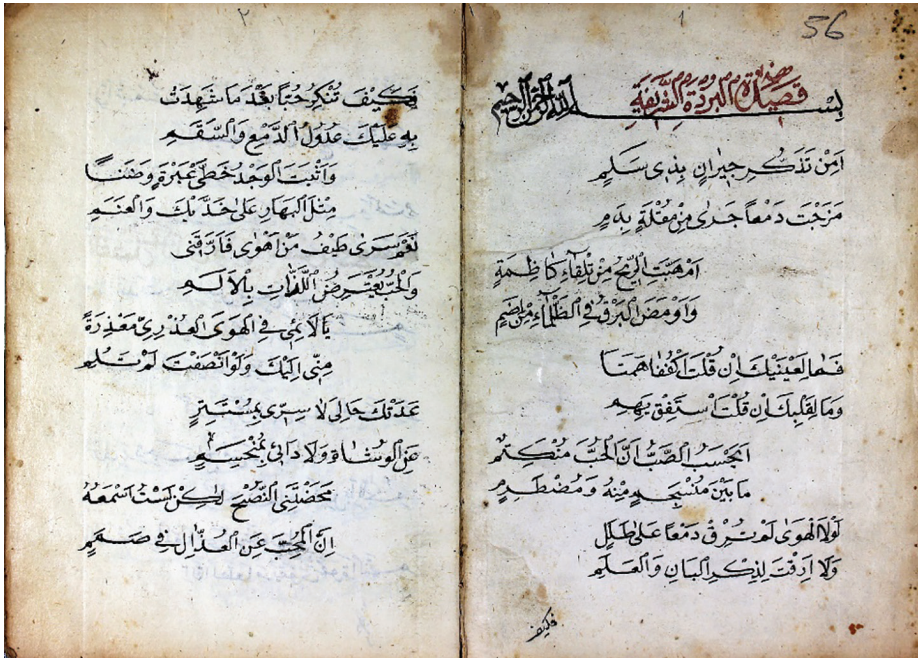 56
١
هذه قصيدة البردة الشريفة
بسم الله الرحمن الرحيم
اَمِنْ تَذَكُّرِ جِيرَانٍ بِذِى سَلَمٍ
مَزَجْتَ دَمْعًا جَرٰى مِنْ مُقْلَةٍ بِدَمٍ
اَمْ هَبَّتِ الرِّيحُ مِنْ تِلْقَاءِ كَاظِمَةٍ
وَاَوْمَضَ الْبَرْقُ فِى الظَّلْمَاءِ مِنْ اِضَمٍ
فَمَا لِعَيْنَيْكَ اِنْ قُلْتَ اكْفُفَا هَمَتَا
وَمَا لِقَلْبِكَ اِنْ قُلْتَ اسْتَفِقْ يَهِمِ
اَيَحْسَبُ الصَّبُّ اَنَّ الْحُبَّ مُنْكَتِمٌ
مَا بَيْنَ مُنْسَجِمٍ مِنْهُ وَمُضْطَرِمٍ
لَوْلَا الْهَوٰى لَمْ تُرِقْ دَمْعًا عَلٰى طَلَلٍ
وَلَا اَرِقْتَ لِذِكْرِ الْبَانِ وَالْعَلَمِ
فكيف
٢
فَكَيْفَ تُنْكِرُ حُبًّا بَعْدَ مَا شَهِدَتْ
بِهِ عَلَيْكَ عُدُولُ الدَّمْعِ وَالسَّقَمِ
وَاَثْبَتَ الْوَجْدُ خَطَّىْ عَبْرَةٍ وَضَنًا
مِثْلَ الْبَهَارِ عَلٰى خَدَّيْكَ وَالْعَنَمِ
نَعَمْ سَرٰى طَيْفُ مَنْ اَهْوٰى فَاَرَّقَنِى
وَالْحُبُّ يَعْتَرِضُ اللَّذَّاتِ بِالْاَلَمِ
يَا لَائِمِى فِى الْهَوَى الْعُذْرِىِّ مَعْذِرَةً
مِنِّى اِلَيْكَ وَلَوْ اَنْصَفْتَ لَمْ تَلُمِ
عَدَتْكَ حَالِى لَا سِرِّى بِمُسْتَتِرٍ
عَنِ الْوُشَاةِ وَلَا دَائِى بِمُنْحَسِمٍ
مَحَضْتَنِى النُّصْحَ لٰكِنْ لَسْتُ اَسْمَعُهُ
اِنَّ الْمُحِبَّ عَنِ الْعُذَّالِ فِى صَمَمٍ